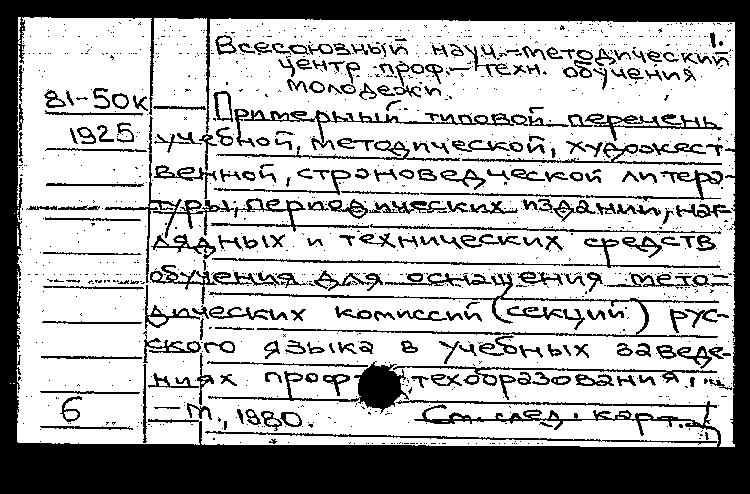 1.
Всесоюзный науч.-методический
центр проф.-техн. обучения
молодежи.
81-50к
Примерный типовой перечень
1925
учебной, методической, художест-
венной, страноведческой литера-
туры, периодических изданий, наг-
лядных и технических средств
обучения для оснащения мето-
дических комиссий (секций) рус-
ского языка в учебных заведе-
ниях проф техобразования.
6 — М., 1980. См. след. карт.